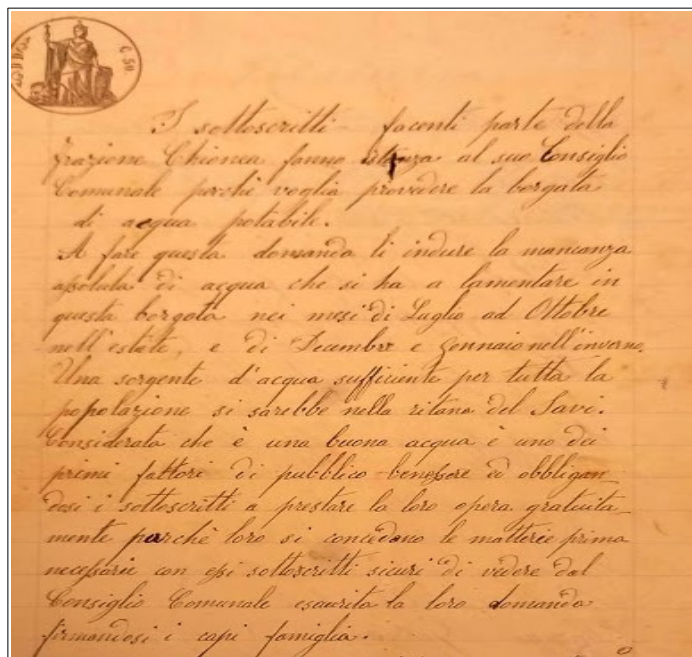 C. 50
I sottoscritti facenti parte della
frazione Chionea fanno istanza al suo Consiglio
Comunale perchè voglia provedere la borgata
di acqua potabile.
A fare questa domanda li indure la mancanza
assoluta di acqua che si ha a lamentare in
questa borgata nei mesi di Luglio ad Ottobre
nell'estate, e di Decembre e Gennaio nell'inverno.
Una sorgente d'acqua sufficiente per tutta la
popolazione si sarebbe nella ritana del Savi.
Considerata che è una buona acqua è uno dei
primi fattori di pubblico benessere ed obbligan
dosi i sottoscritti a prestare la loro opera gratuita
mente purchè loro si concedano le matterie prima
necessarie con essi sottoscritti sicuri di vedere dal
Consiglio Comunale esaurita la loro domanda
firmandosi i capi famiglia.